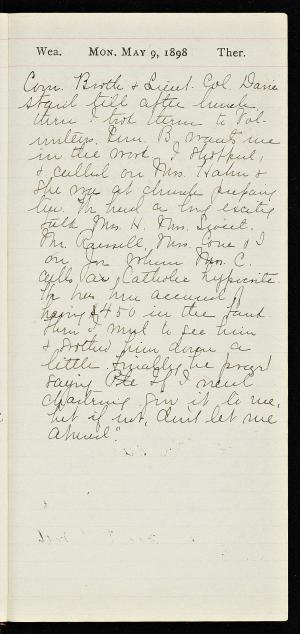 Wea. MON. MAY 9, 1898 Ther.
Com. Booth & Lieut. Col. Davis
staid till after lunch
then I took them to Vol-
unteers. Com. B. wants me
in the work. I shopped,
& called on Mrs. Hahn &
She was at church preparing
tea. We had a long exciting
talk Mrs. H. Mrs. Sweet.
Mr. Russell, Mrs. Cone & I
on Mrs. C.
calls a Catholic hypocrite.
He has been accused of
having $450 in the bank
then I went to see him
& soothed him down a
little. Finally he prayed
saying I need
chastening give it to me,
but if not, don't let me
abused."